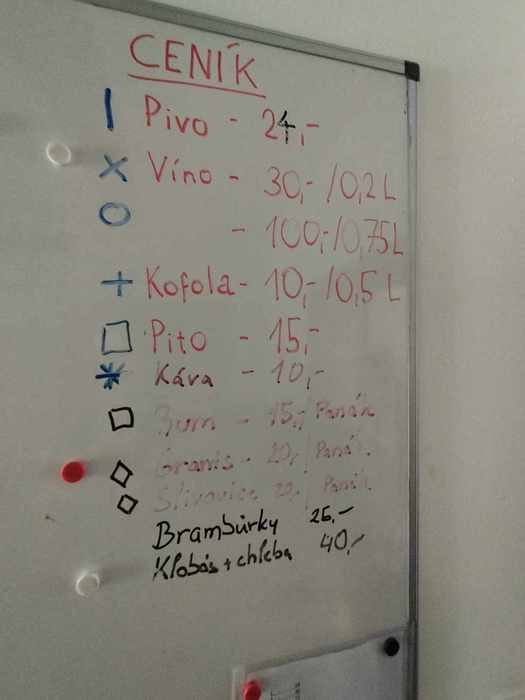 CENÍK
Pivo - 24,-
Víno - 30,-/0,2L
- 100,-/0,75L
Kofola - 10,-/0,5 L
Pito - 15,-
Káva - 10,-
- 15,- Panák
- 20,- Panák
Slivovice 20,- Panák
Brambůrky 25,-
Klobás + chleba 40,-